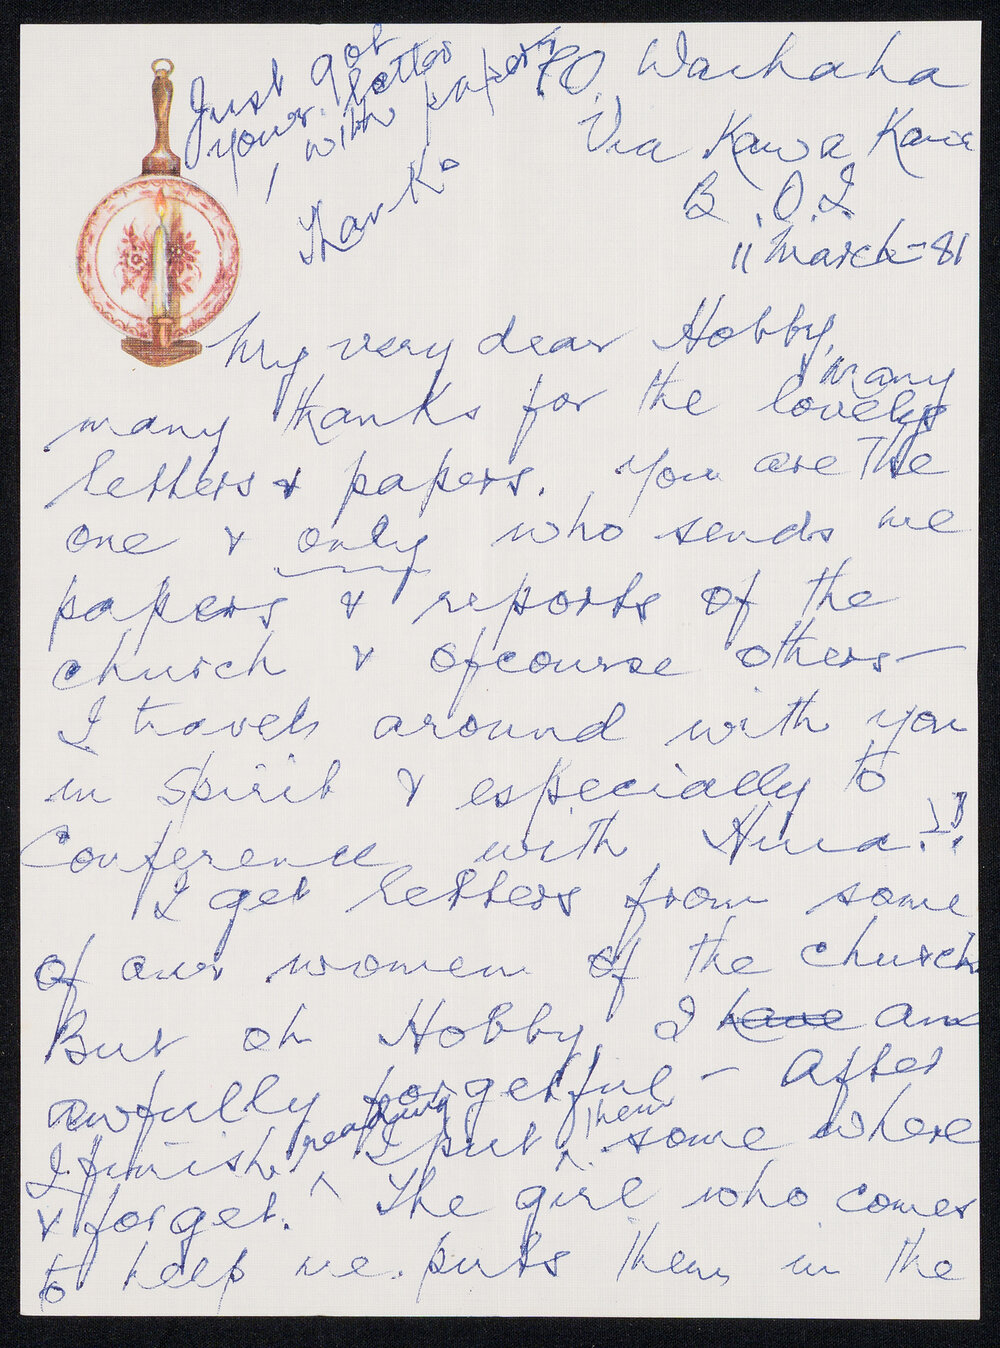 Just got
your letter
with papers
Thanks
P.O. Waihaha
Via Kawa Kawa
B.O.I.
11 March - 81
My very dear Hobby,
many
many thanks for the lovely
letters & papers. You are the
one & only who sends me
papers & reports of the
church & ofcourse others —
I travels around with you
in spirit & especially to
Conference with Hina!!
I get letters from some
of our women of the church
But oh Hobby, I have am
awfully forgetful — After
reading them
I finish I put some where
& forget. The girl who comes
to help me. puts them in the